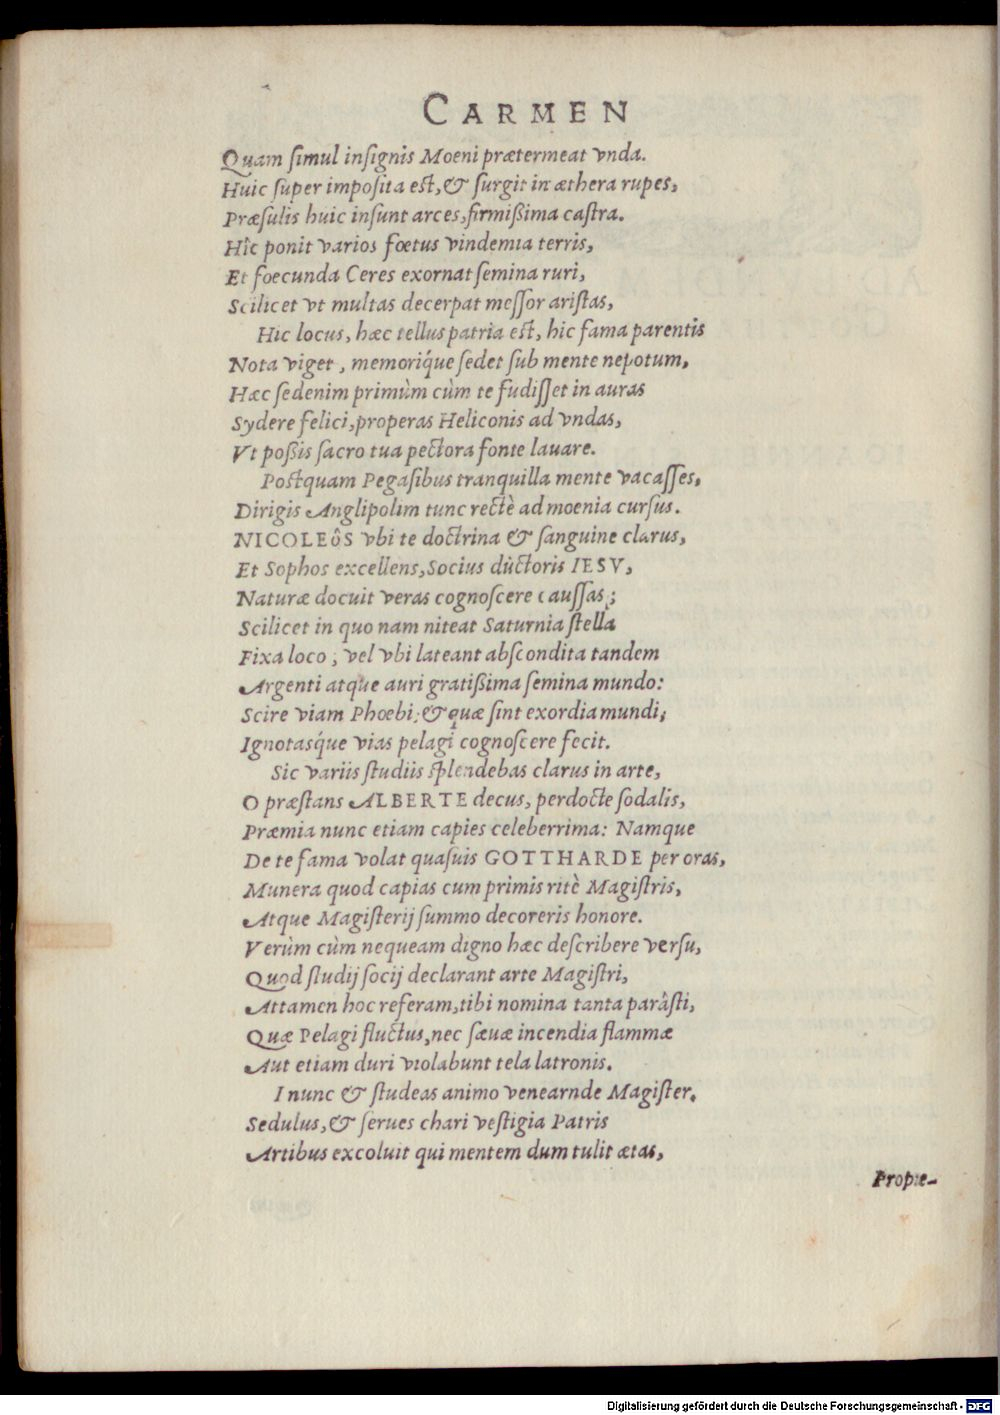 CARMEN
Quam simul insignis Moeni prætermeat vnda.
Huic super imposita est, & surgit in æthera rupes,
Præsulis huic insunt arces, firmißima castra.
Hîc ponit varios fœtus vindemia terris,
Et foecunda Ceres exornat semina ruri,
Scilicet vt multas decerpat messor aristas,
Hic locus, hæc tellus patria est, hic fama parentis
Nota viget, memoriq́ue sedet sub mente nepotum,
Hæc sedenim primùm cùm te fudisset in auras
Sydere felici, properas Heliconis ad vndas,
Vt poßis sacro tua pectora fonte lauare.
Postquam Pegasibus tranquilla mente vacasses,
Dirigis Anglipolim tunc rectè ad moenia cursus.
NICOLEôS vbi te doctrina & sanguine clarus,
Et Sophos excellens, Socius dùctoris IESV,
Naturæ docuit veras cognoscere caussas;
Scilicet in quo nam niteat Saturnia stella
Fixa loco; vel vbi lateant abscondita tandem
Argenti atque auri gratißima semina mundo:
Scire viam Phoebi; & quæ sint exordia mundi;
Ignotasq́ue vias pelagi cognoscere fecit.
Sic variis studiis splendebas clarus in arte,
O præstans ALBERTE decus, perdocte sodalis,
Præmia nunc etiam capies celeberrima: Namque
De te fama volat quasuis GOTTHARDE per oras,
Munera quod capias cum primis ritè Magistris,
Atque Magisterij summo decoreris honore.
Verùm cùm nequeam digno hæc describere versu,
Quod studij socij declarant arte Magistri,
Attamen hoc referam, tibi nomina tanta parâsti,
Quæ Pelagi fluctus, nec sæuæ incendia flammæ
Aut etiam duri violabunt tela latronis.
I nunc & studeas animo venearnde Magister.
Sedulus, & serues chari vestigia Patris
Artibus excoluit qui mentem dum tulit ætas,
Propte-
Digitalisierung gefördert durch die Deutsche Forschungsgemeinschaft - DFG